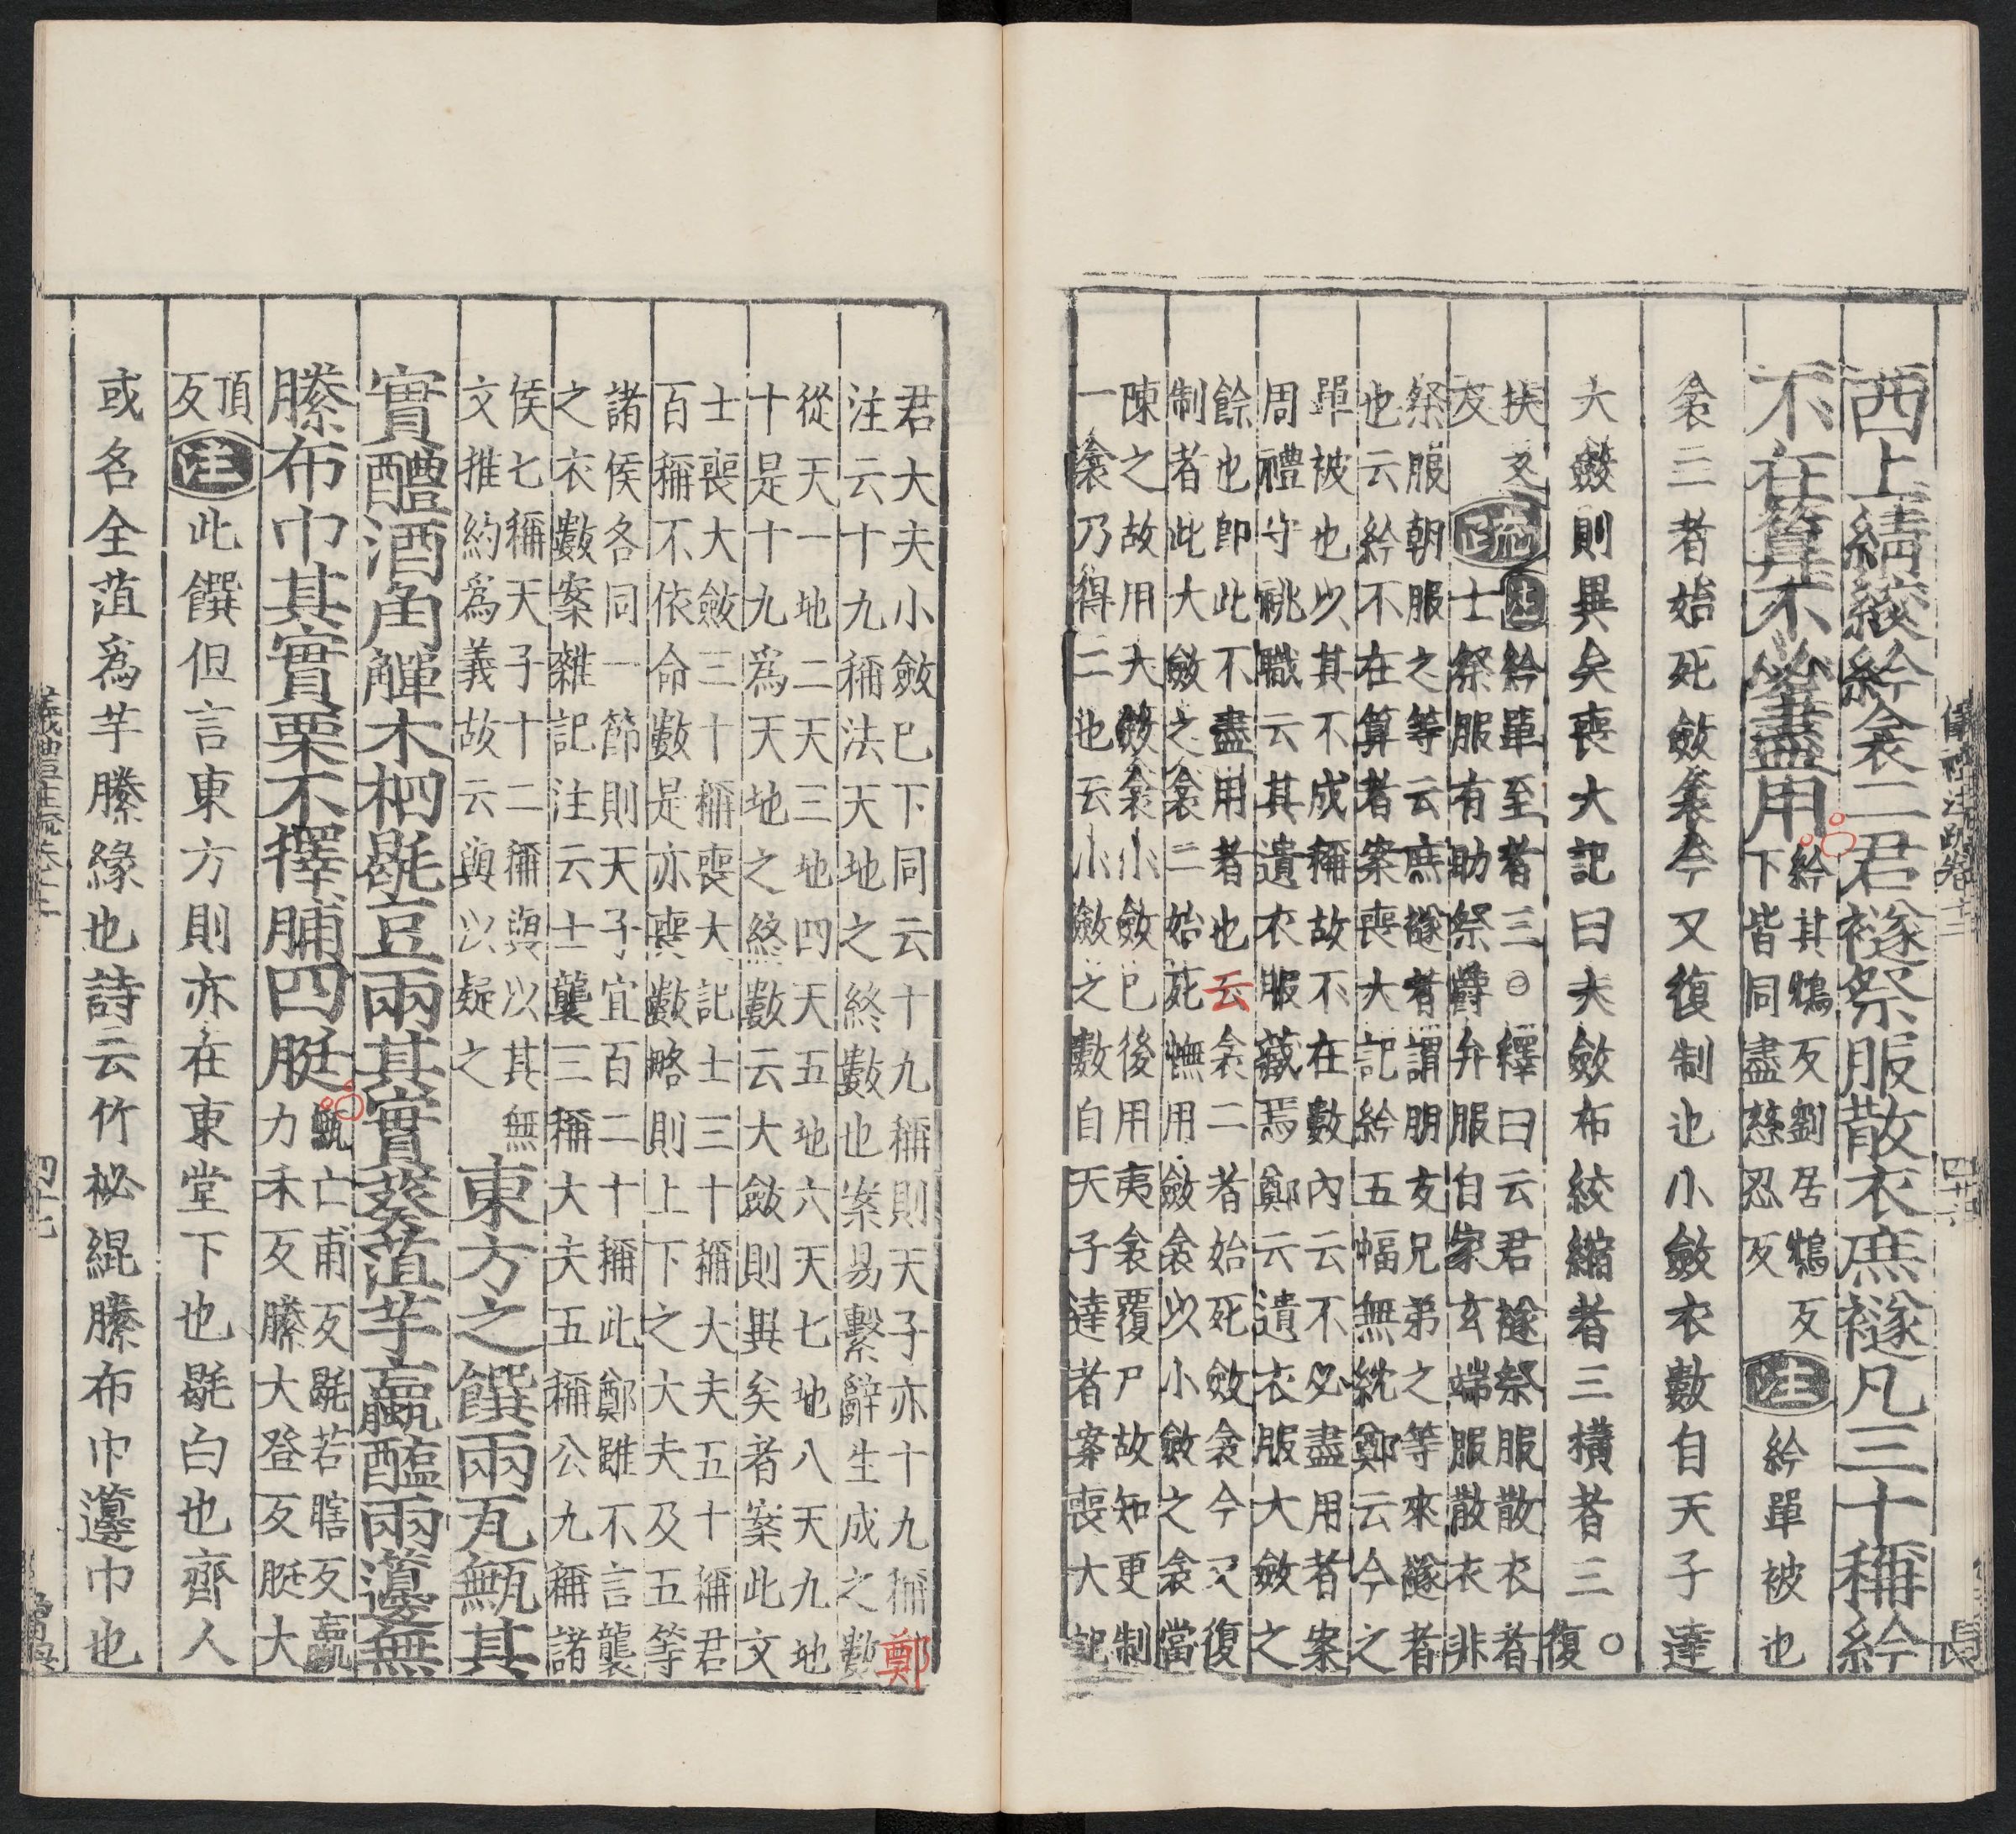 西上綪絞紟衾二君襚祭服散衣庶襚凡三十稱紟
不在筭不必盡用紟其鴆反劉居鴆反
下皆同盡慈忍反注紟單被也
衾二者始死斂衾今又復制也小斂衣數自天子達
大斂則異矣喪大記曰大斂布絞縮者三横者三○復
扶又
反疏注紟單至者三○釋曰云君襚祭服散衣者
士祭服有助祭爵弁服自家玄端服散衣非
祭服朝服之等云庶襚者謂朋友兄弟之等來襚者
也云紟不在算者案喪大記紟五幅無紞鄭云今之
單被也以其不成稱故不在數内云不必盡用者案
周禮守祧職云其遺衣服藏焉鄭云遺衣服大斂之
餘也即此不盡用者也云衾二者始死斂衾今又復
制者此大斂之衾二始死幠用斂衾以小斂之衾當
陳之故用大斂衾小斂已後用夷衾覆尸故知更制
一衾乃得二也云小斂之數自天子達者案喪大記
君大夫小斂已下同云十九稱則天子亦十九稱鄭
注云十九稱法天地之終數也案易繫辭生成之數
從天一地二天三地四天五地六天七地八天九地
十是十九爲天地之終數云大斂則異矣者案此文
士喪大斂三十稱喪大記士三十稱大夫五十稱君
百稱不依命數是亦喪數略則上下之大夫及五等
諸侯各同一節則天子宜百二十稱此鄭雖不言襲
之衣數案雜記注云士襲三稱大夫五稱公九稱諸
侯七稱天子十二稱與以其無
文推約爲義故云與以疑之東方之饌兩瓦甒其
實醴酒角觶木柶毼豆兩其實葵菹芋蠃醢兩籩無
縢布巾其實栗不擇脯四脡甒亡甫反毼若瞎反蠃
力禾反縢大登反脡大
頂
反注此饌但言東方則亦在東堂下也毼白也齊人
或名全菹爲芋縢緣也詩云竹柲緄縢布巾籩巾也